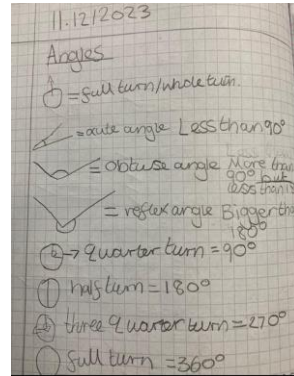 11.12/2023
Angles
=full turn/whole turn.
=aute angle Less than 90°
=obtuse angle More than
90° but
less than 1
=reflex angle Bigger tha
180°
→quarter turn=90°
half turn=180°
three quarter turn=270°
full turn=360°